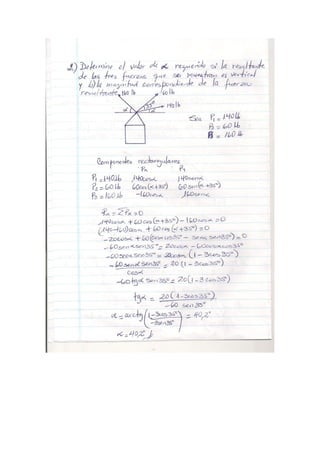 2) Determine el valor de α requerido si la resultante
de las tres fuerzas que se muestran es vertical
y b) la magnitud correspondiente de la fuerza
resultante
160 lb
60 lb
140 lb
α
35°
α
Sea P₁ = 140 lb
P₂ = 60 lb
P₃ = 160 lb
Componentes rectangulares
Px Py
P₁ = 140 lb 140cosα 140senα
P₂ = 60 lb 60cos(α+35°) 60sen(α+35°)
P₃ = 160 lb -160cosα 160senα
Px = ΣPx = 0
140cosα + 60cos(α+35°) - 160cosα = 0
(140-160)cosα + 60cos(α+35°) = 0
-20cosα + 60(cosαcos35° - senα sen35°) = 0
-60senαsen35° = 20cosα - 60cosαcos35°
-60senαsen35° = 20cosα (1 - 3cos35°)
-60senαsen35° / cosα = 20(1 - 3cos35°)
-60tgα sen35° = 20(1 - 3cos35°)
tgα = 20(1 - 3cos35°) / -60 sen35°
α = arctg (1 - 3cos35° / -3sen35°) = 40,2°
α = 40,2°